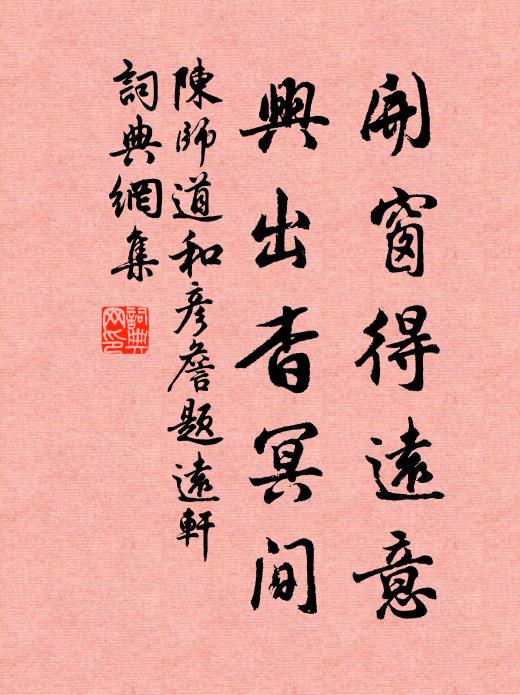 開窗得遠意
興出杳冥間
陳師道和彥詹題遠軒
詞典網集
詞典网印